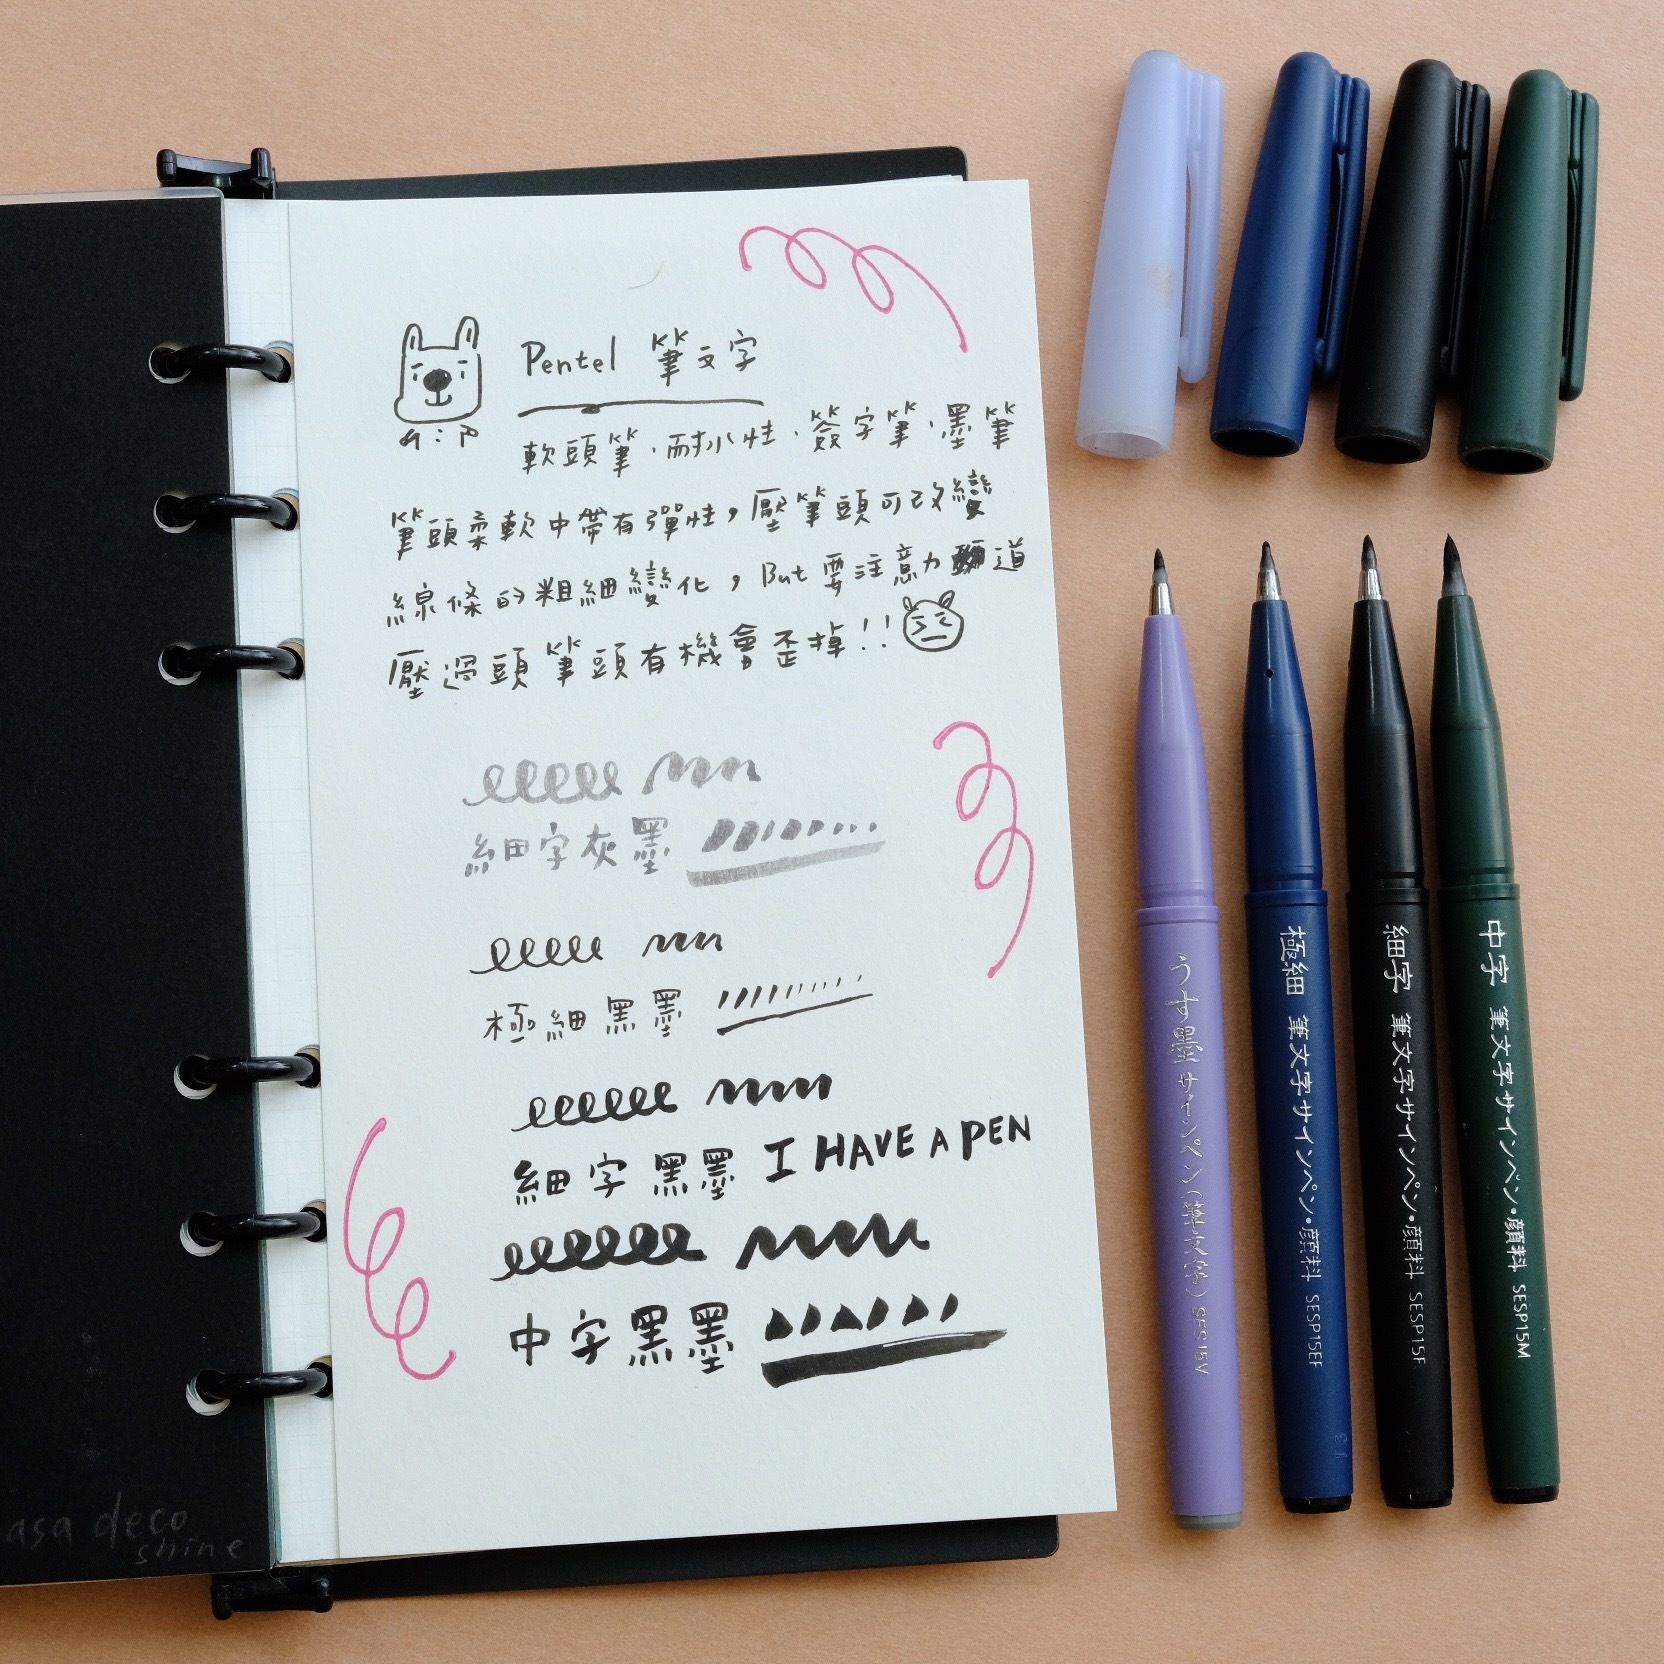 Pentel 筆文字
軟頭筆．耐水性．簽字筆．墨筆
筆頭柔軟中帶有彈性，壓筆頭可改變
線條的粗細變化，But 要注意力道
壓過頭筆頭有機會歪掉!!
細字灰墨
極細黑墨
細字黑墨 I HAVE A PEN
中字黑墨
asa deco
shine
うす墨サインペン(筆文字) SES15V
極細 筆文字サインペン・顔料 SESP15EF
細字 筆文字サインペン・顔料 SESP15F
中字 筆文字サインペン・顔料 SESP15M